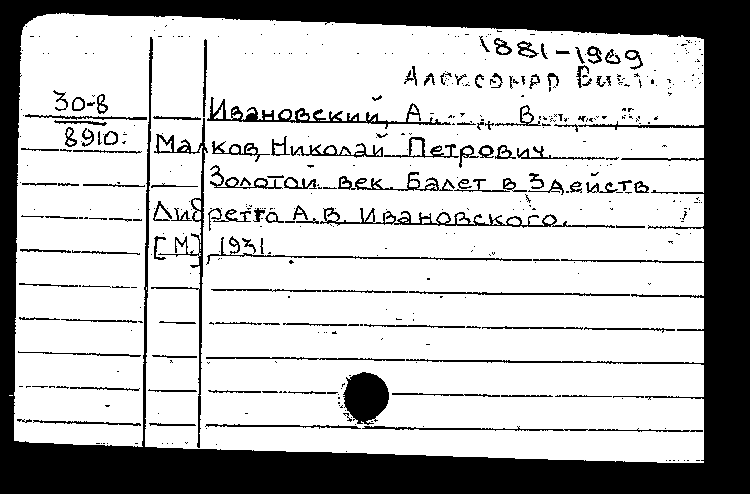 1881-1969
Александр
30-8 Ивановский, А.
8910: Малков, Николай Петрович.
Золотой век. Балет в 3 действ.
Либретто А.В. Ивановского.
[М.], 1931.